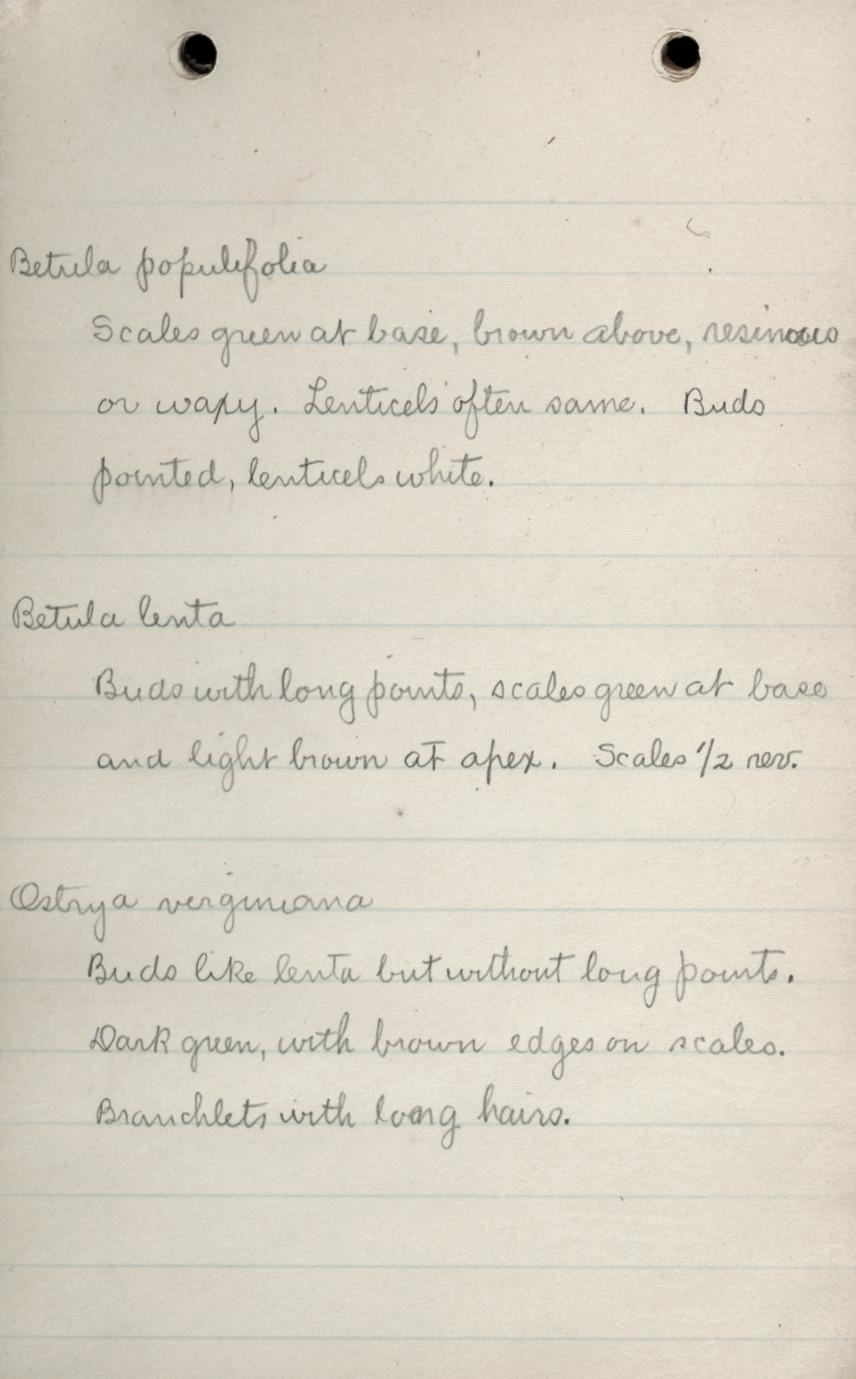 Betula populifolia
Scales green at base, brown above, resinous
or waxy. Lenticels often same. Buds
pointed, lenticels white.
Betula lenta
Buds with long points, scales green at base
and light brown at apex. Scales 1/2 rev.
Ostrya virginiana
Buds like lenta but without long points.
Dark green, with brown edges on scales.
Branchlets with long hairs.